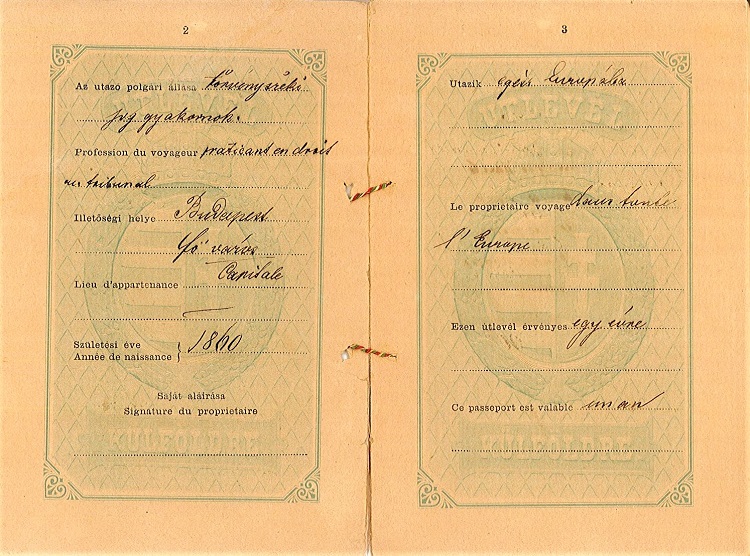 2
Az utazó polgári állása törvényszéki
jogyakornok.
Profession du voyageur praticant en droit
au tribunal
Illetőségi helye Budapest
fő város
Capitale
Lieu d'appartenance
Születési éve
Année de naissance } 1860
Saját aláirása
Signature du proprietaire
KÜLFÖLDRE
3
Utazik egész Európába
UTLEVÉL
Le proprietaire voyage dans toute
l'Europe
Ezen útlevél érvényes egy évre
Ce passeport est valable un an
KÜLFÖLDRE